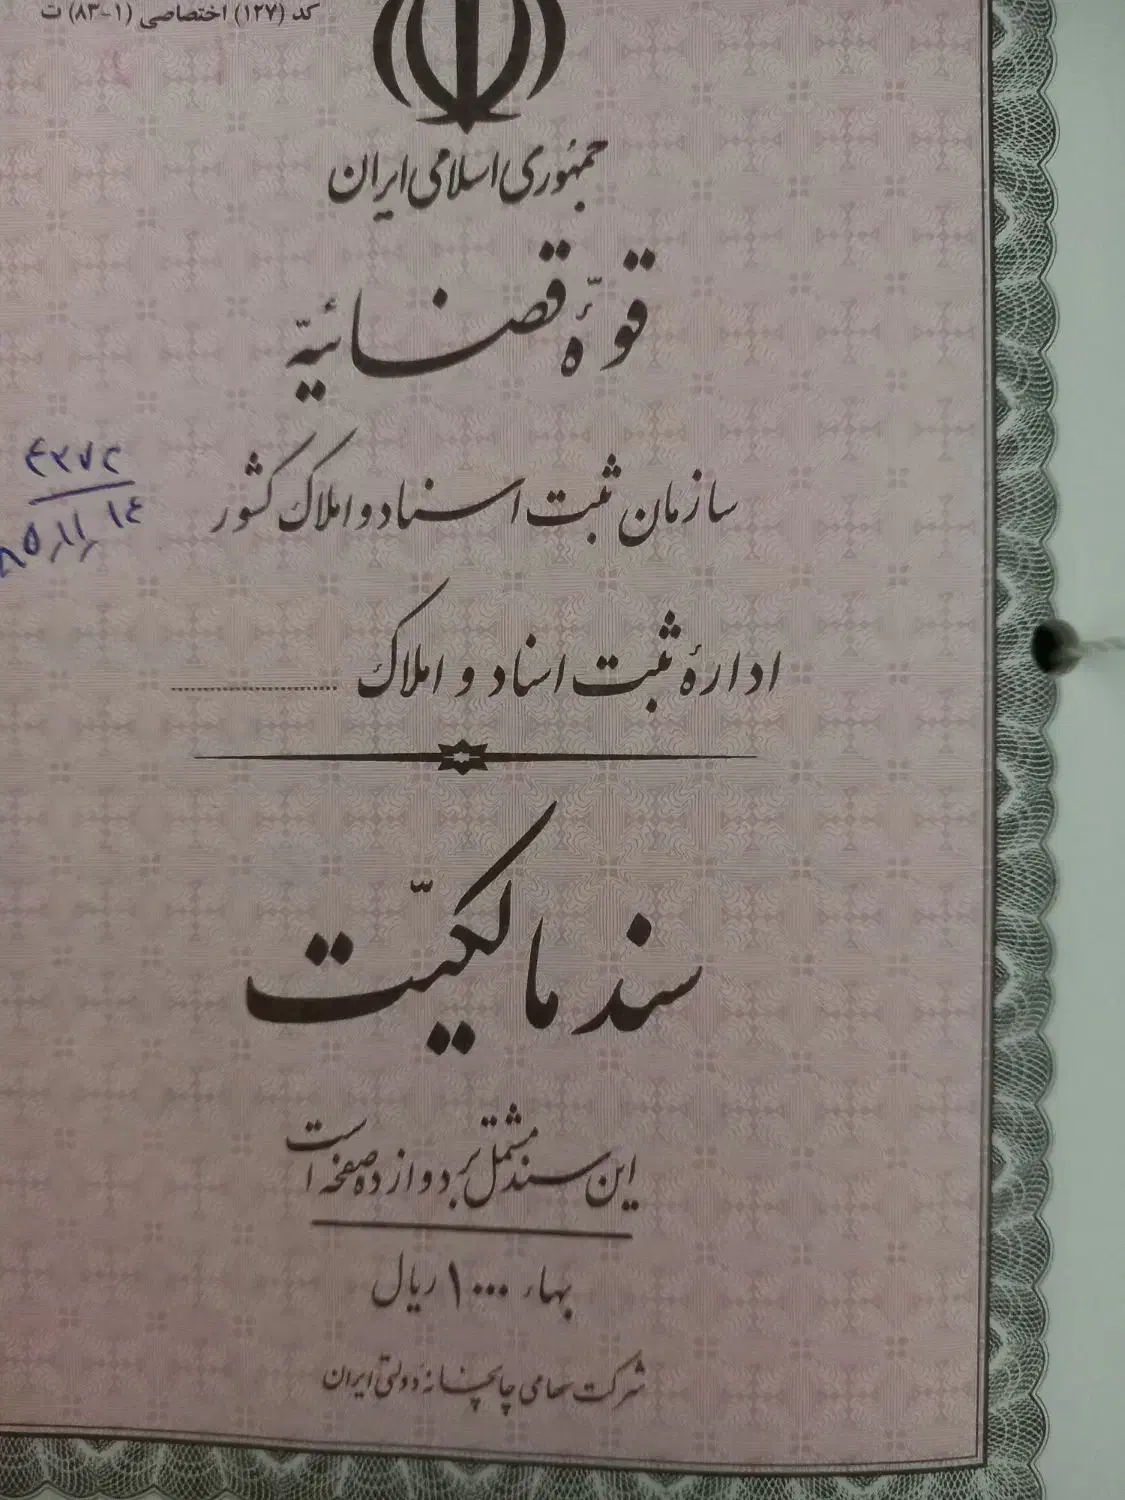 کد (۱۲۷) اختصاصی (۱-۸۳) ت
جمهوری اسلامی ایران
قوّهٔ قضائیّه
سازمان ثبت اسناد و املاک کشور
۴۳۷۲
۸۵/۱۱/۱۴
ادارهٔ ثبت اسناد و املاک ....................
سند مالکیّت
این سند مشتمل بر دوازده صفحه است
بهاء ۱۰۰۰ ریال
شرکت سهامی چاپخانه دولتی ایران